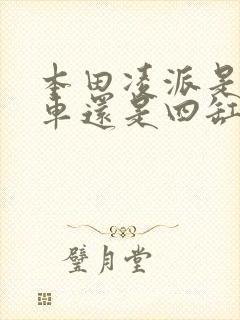 本田凌派是
車還是四缸
璧月堂